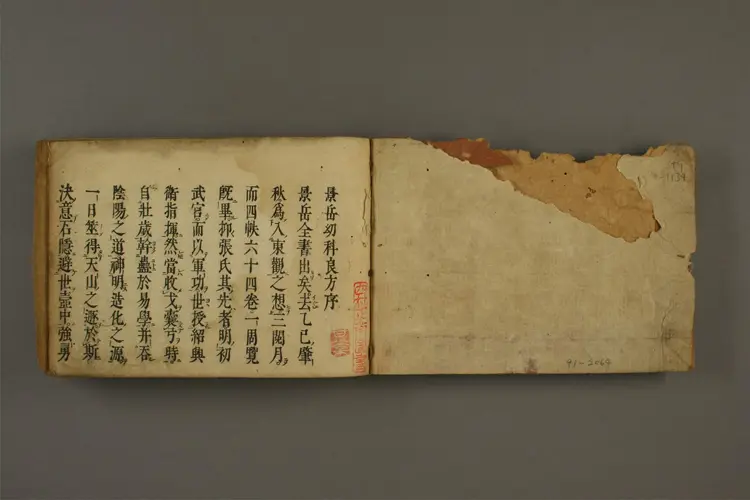 景岳幼科良方序
景岳全書出矣去乙巳肇
秋爲入東觀之想三閱月
而四帙六十四卷一周覽
既畢抑張氏其先者明初
武官而以軍功世授紹興
衛指揮然當收戈櫜弓時
自壯歲幹蠱於易學并吞
陰陽之道神明造化之源
一日筮得天山之遯於斯
決意石隱避世壺中強男
41-2064